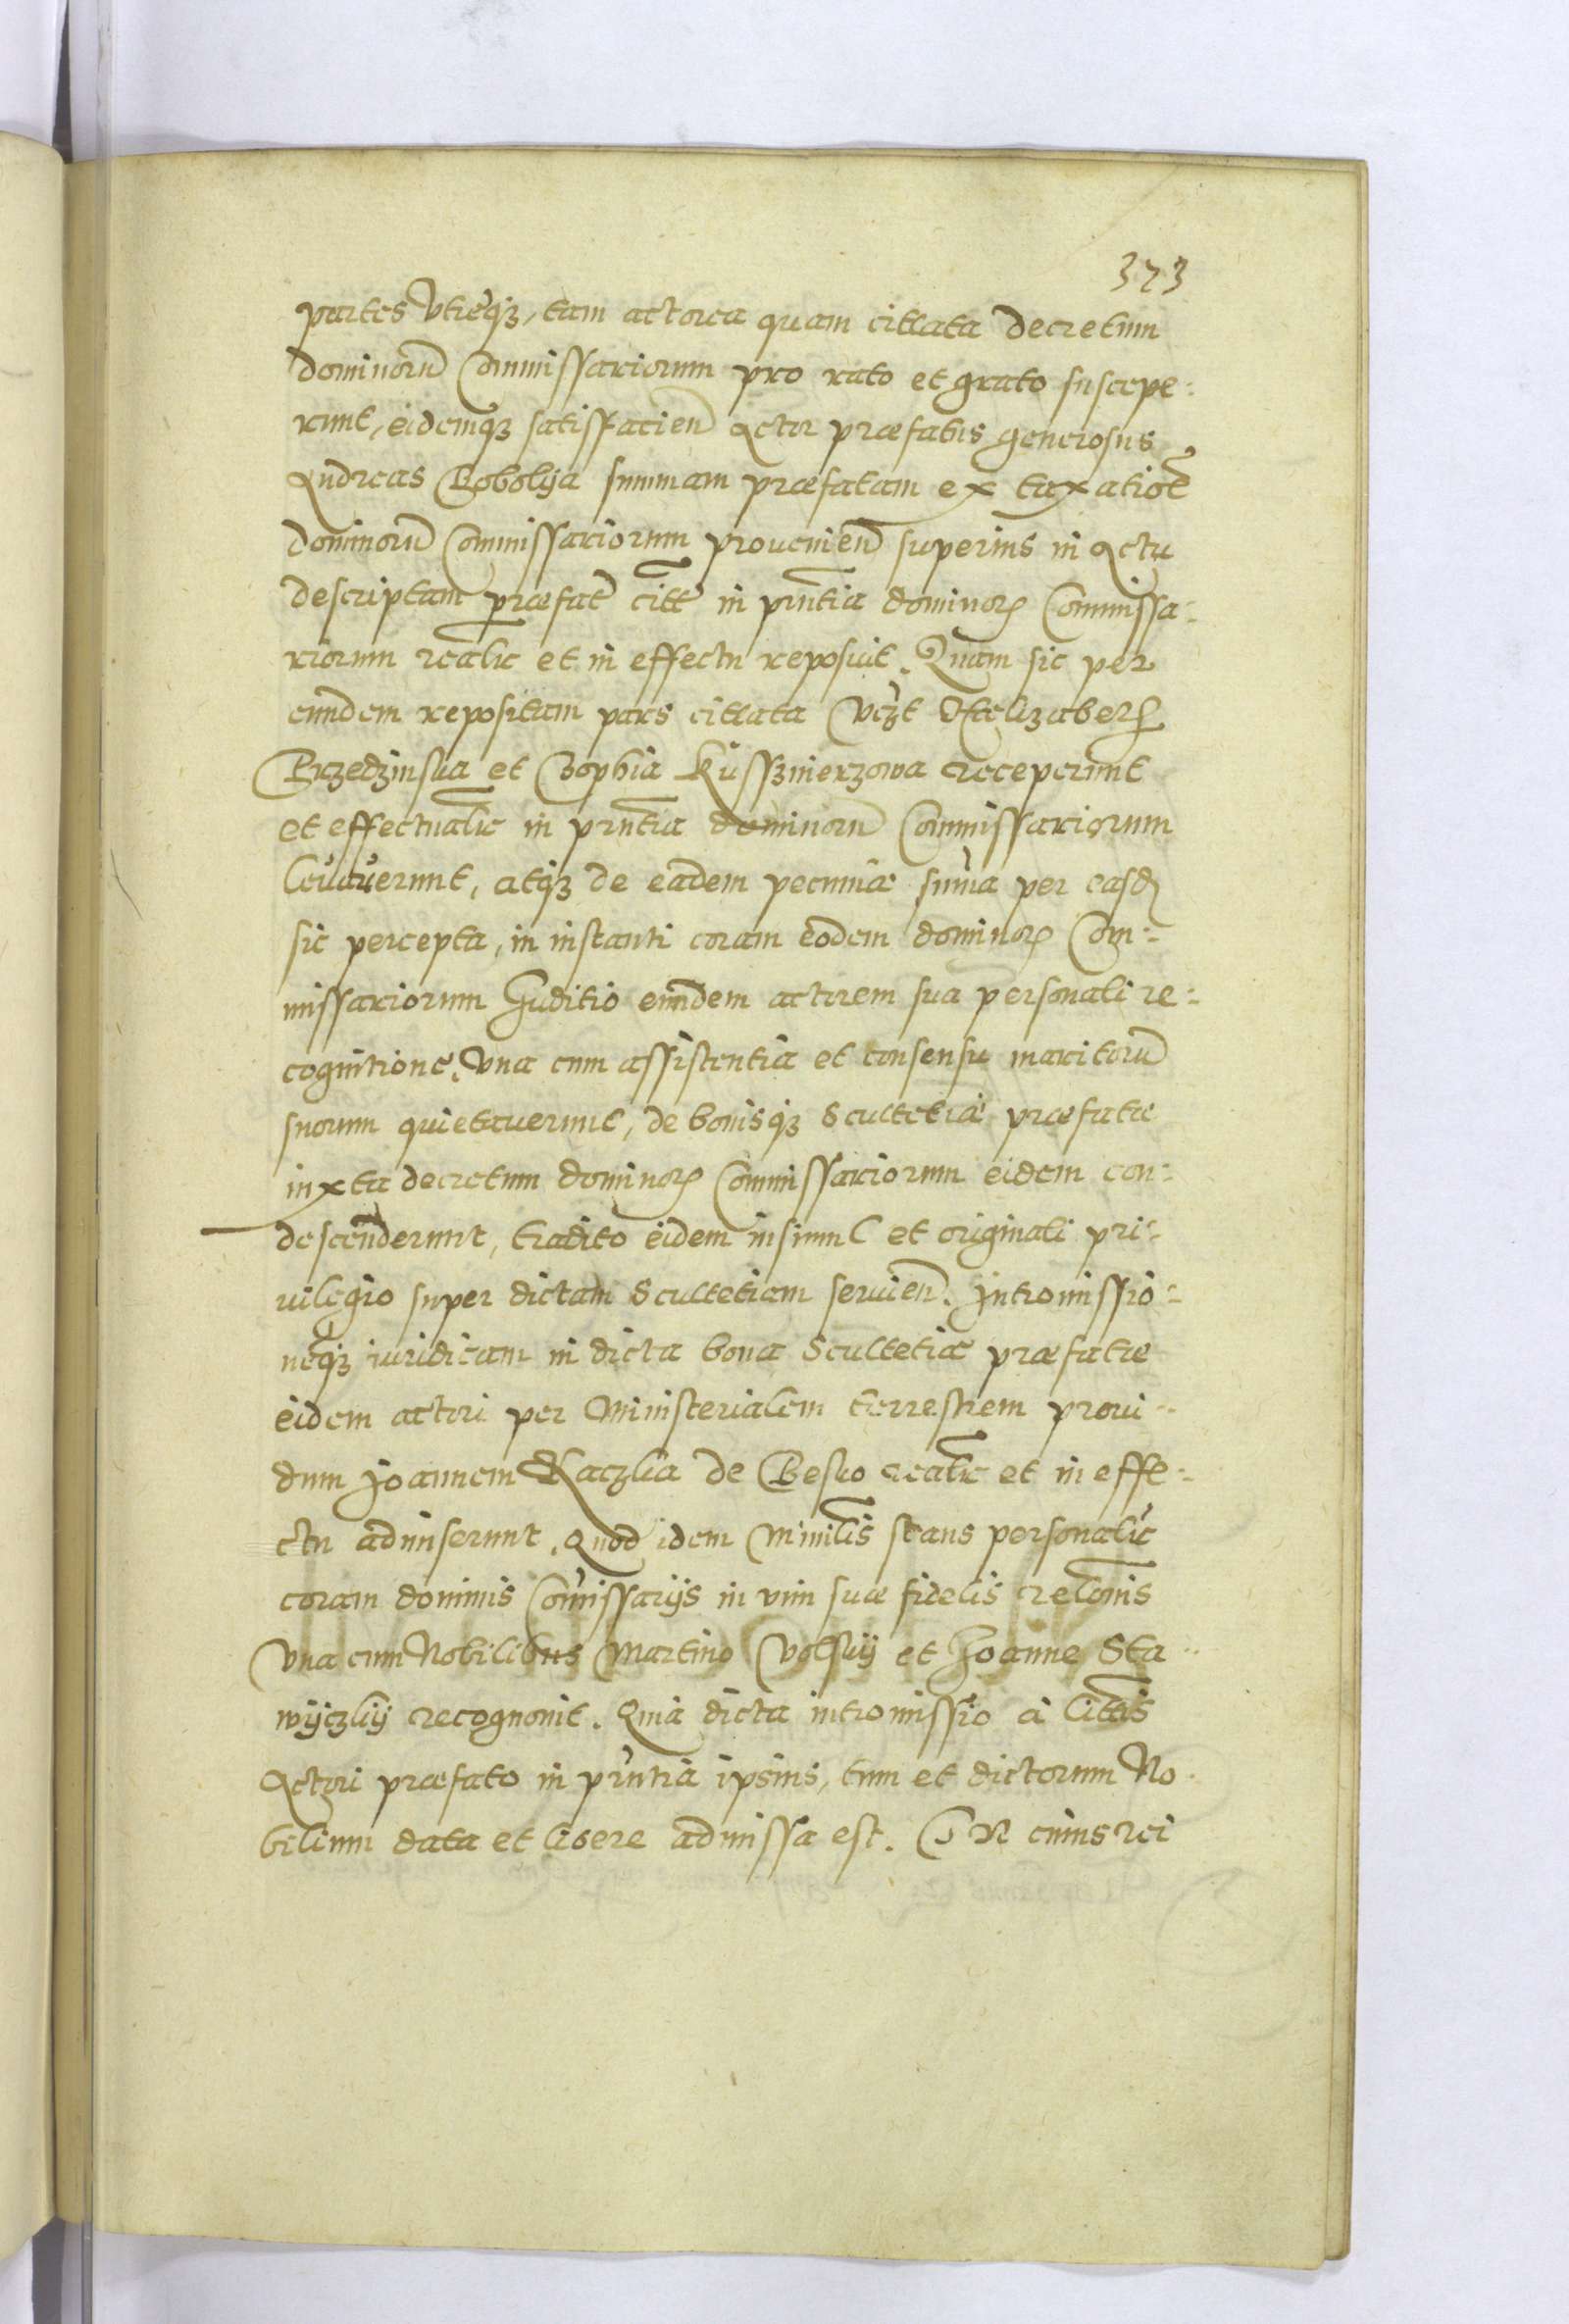 373
partes vtreq3, tam actorea quam cittata decretum
dominorũ Commissariorum pro rato et grato suscepe:
runt, eidemq3 satisfacieñ Actor præfatus generosus
Andreas Bobolya summam præfatam ex taxatioẽ
dominorũ Commissariorum proueuieñ superius in Actu
descriptam præfat̃ citt̃ in pñtia dominor̃ Commissa:
riorum realĩc et in effectu reposuit. Quam sic per
eundem repositam pars cittata vcz̃t
Brzedzinska et Zophia Kussznierzowa receperunt
et effectualĩc in pñtia dominorũ Commissariorum
leuauerunt, atq3 de eadem pecuniæ sum̃a per easd̃
sic percepta, in instanti coram eodem dominor̃ Com:
missariorum Juditio eundem actorem sua personali re:
cognitione, vna cum assistentia et consensu maritorũ
suorum quietauerunt, de bonisq3 Scultetiæ præfatæ
iuxta decretum dominor̃ Commissariorum eidem con:
descenderunt, tradito eidem insimul et originali pri:
uilegio super dictam Scultetiam seruieñ. Intromissio:
neq3 iuridicam in dicta bona Scultetiæ præfatæ
eidem actori per Ministerialem terrestrem proui:
dum Joannem Kaczka de Besko realĩc et in effe:
ctu admiserunt. Quod idem Minil̃is stans personalĩc
coram dominis Com̃issarijs in vim suæ fidelis relõnis
vna cum Nobilibus Martino Volsky et Joanne Sta:
wyczky recognouit. Quia dicta intromissio à citt̃is
Actori præfato in pñtia ipsius, tum et dictorum No:
bilium data et libere admissa est. IN cuius rei